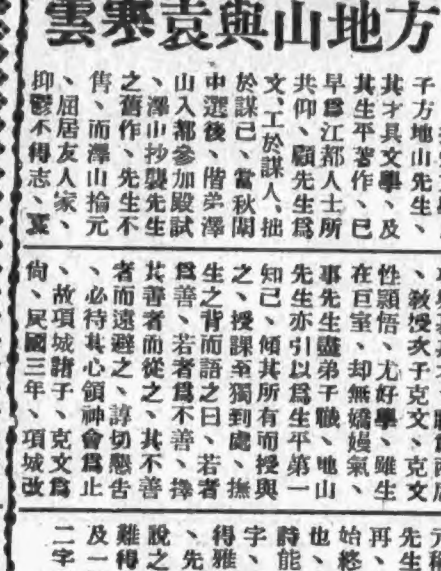 方地山與袁寒雲
子方地山先生、
其才具文學、及
其生平著作、已
早爲江都人士所
共仰、顧先生爲
文、工於謀人、拙
於謀己、當秋闈
中選後、偕弟澤
山入都參加殿試
、澤山抄襲先生
之舊作、先生不
售、而澤山掄元
、屈居友人家、
抑鬱不得志、
、敎授次子克文、克文
性穎悟、尤好學、雖生
在巨室、却無嬌嫚氣、
事先生盡弟子職、地山
先生亦引以爲生平第一
知己、傾其所有而授與
之、授課至獨到處、撫
生之背而語之曰、若者
爲善、若者爲不善、擇
其善者而從之、其不善
者而遠避之、諄切懇告
、必待其心領神會爲止
、故項城諸子、克文爲
尙、民國三年、項城改
先生
再、
始終
也、
詩能
字、
得雅
、先
說之
難得
及一
二字